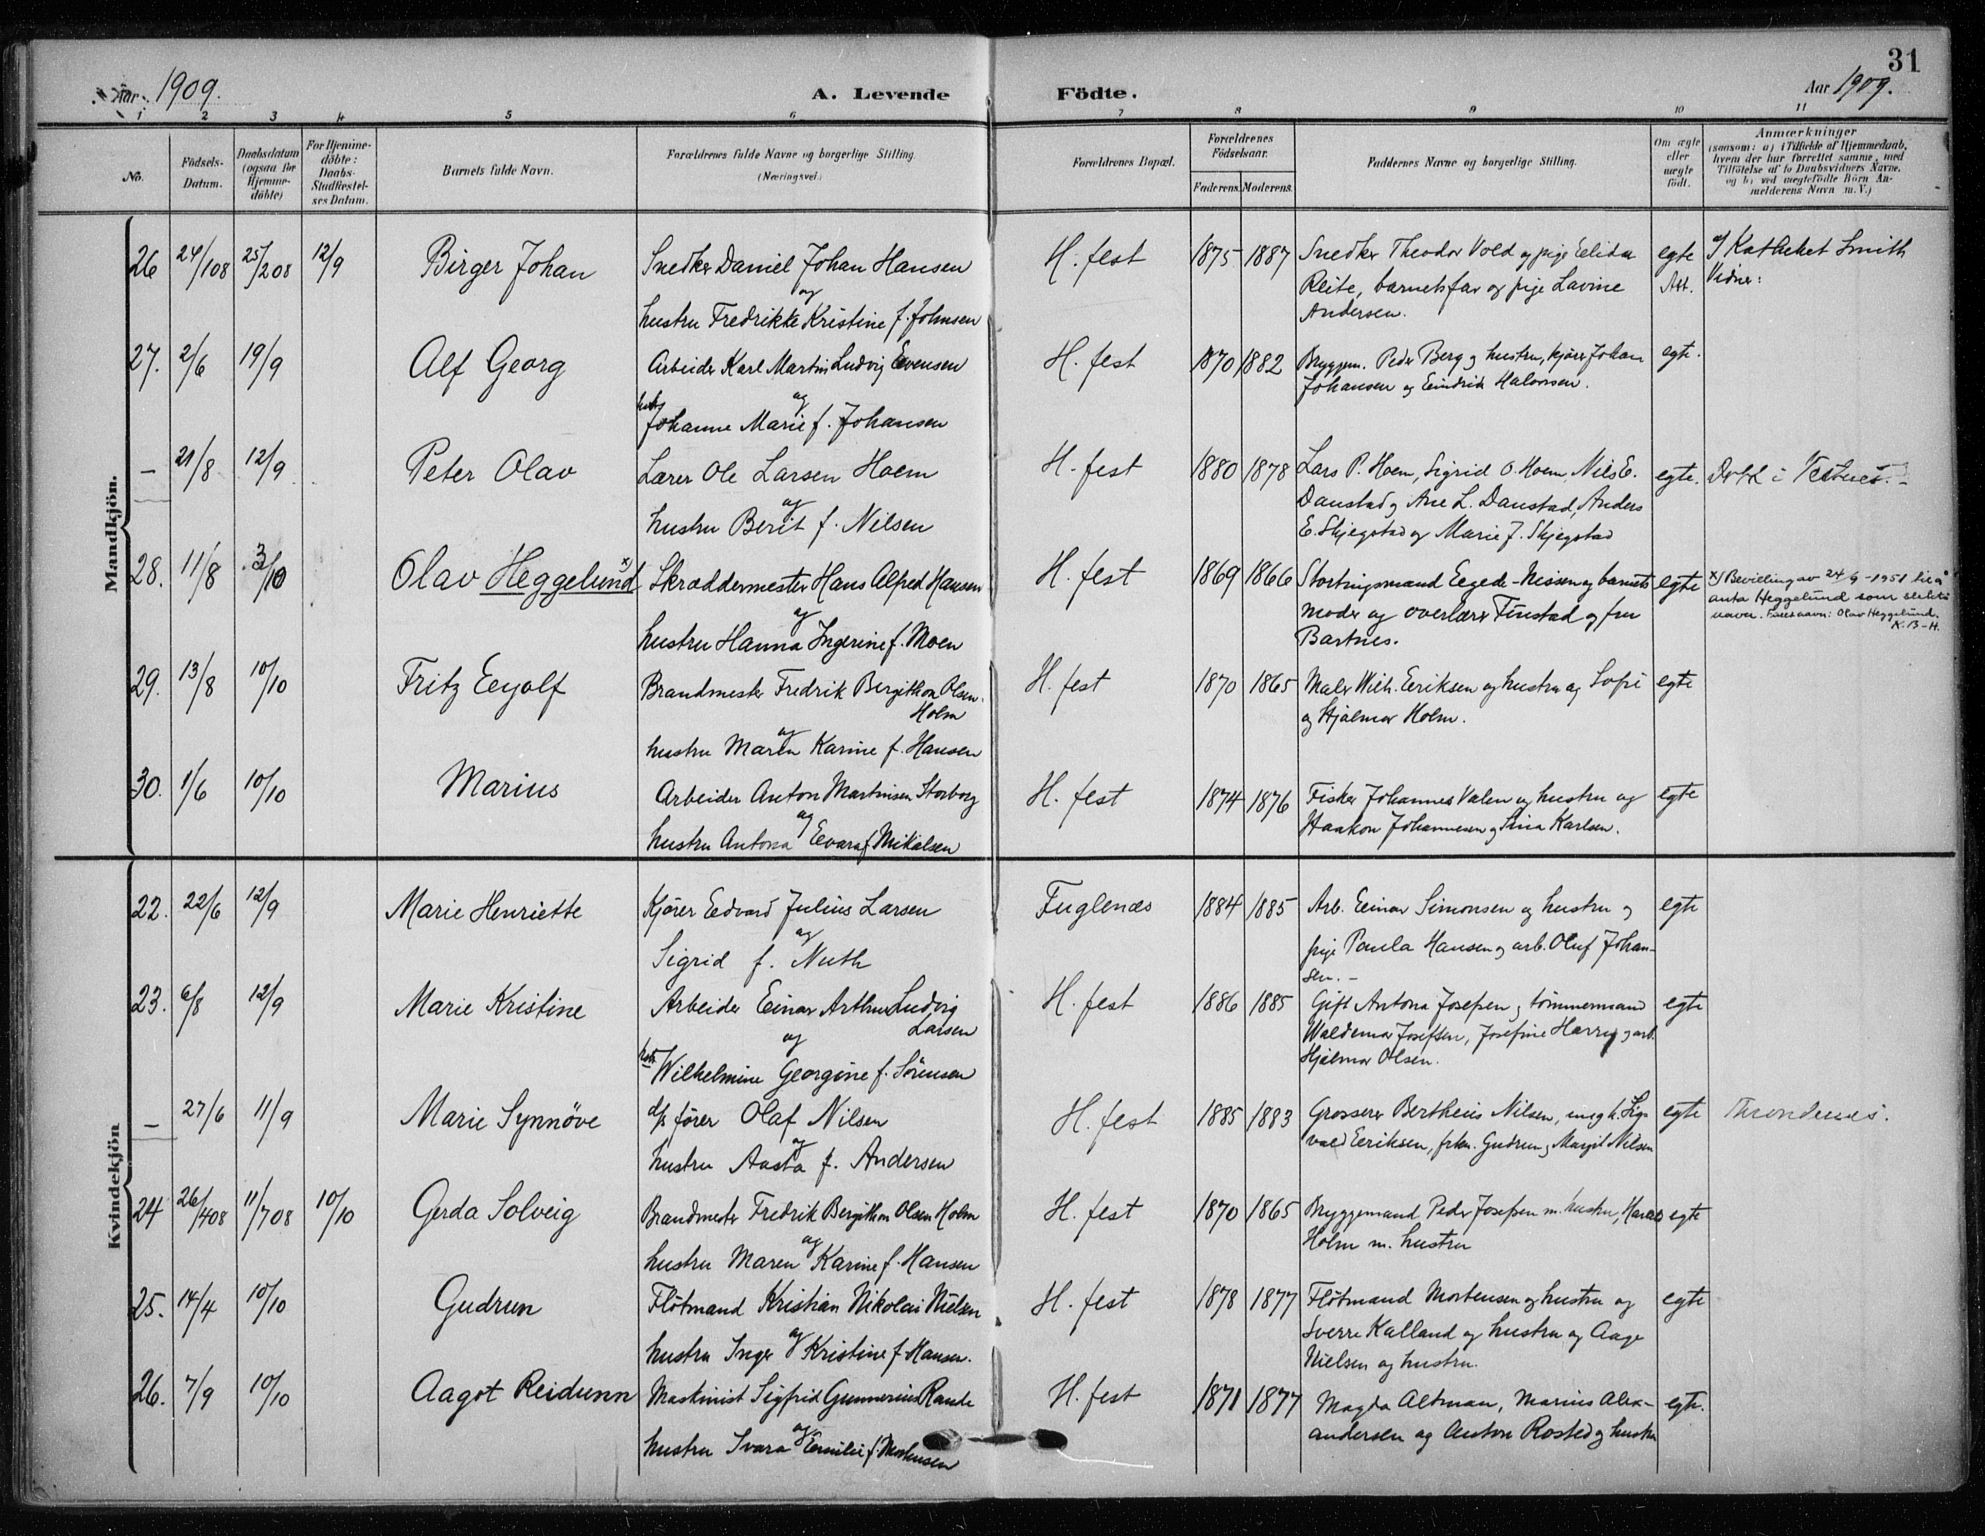 31
Aar 1909.
A. Levende
Födte.
Aar 1909.
1 2 3 4 5 6 7 8 9 10 11
No.
Födsels-
Datum.
Daabsdatum
(ogsaa for
Hjemme-
döbte)
For Hjemme-
döbte:
Daabs-
Stadfæstel-
ses Datum.
Barnets fulde Navn.
Forældrenes fulde Navne og borgerlige Stilling.
(Næringsvei.)
Forældrenes Bopæl.
Forældrenes
Födselsaar.
Faderens. Moderens.
Faddernes Navne og borgerlige Stilling.
Om ægte
eller
uægte
födt.
Anmærkninger
(saasom: a) i Tilfælde af Hjemmedaab,
hvem der har forrettet samme, med
Tilföielse af to Daabsvidners Navne,
og b) ved uægtefödte Börn An-
melderens Navn m. V.)
Mandkjön.
26 24/108 25/208 12/9 Birger Johan Snedker Daniel Johan Hansen H. fest 1875 1887 Snedker Theodor Vold og pige Elida egte a/ Kateket Smith
og Reite, barnets far og pige Lavine Att. Vidner:
hustru Fredrikke Kristine f. Johnsen Andersen.
27. 2/6 19/9 Alf Georg Arbeider Karl Martin Ludvig Evensen H. fest 1870 1882 Bryggem. Peder Berg og hustru, kjører Johan egte.
og Johansen og Eindrik Halvorsen.
hustru Johanne Marie f. Johansen
— 21/8 12/9 Peter Olav Lærer Ole Larsen Hoem H. fest 1880 1878 Lars P. Hoem, Sigrid O. Hoem, Nils E. egte. Døbt i Vestnes.
og Daustad og Ane L. Daustad, Anders
hustru Berit f. Nilsen E. Skjegstad og Marie J. Skjegstad
28. 11/8 3/10 Olav Heggelund x Skræddermester Hans Alfred Hansen H. fest 1869 1866 Stortingsmand Egede-Nissen og barnets egte x/ Bevilling av 24/9-1951 til å
og moder og overlærer Finstad og fru anta Heggelund som slekts
hustru Hanna Ingerine f. Moen Bartnes. navn. Fullt navn: Olav Heggelund.
K. B-H.
29. 13/8 10/10 Fritz Eyolf Brandmester Fredrik Bergithon Olsen H. fest 1870 1865 Maler Wilh. Eriksen og hustru og Sofie egte
Holm og Hjalmar Holm.
og
hustru Maren Karine f. Hansen
30. 1/6 10/10 Marius Arbeider Anton Martinsen Storborg H. fest 1874 1876 Fisker Johannes Valen og hustru og egte
og Haakon Johannesen og Sina Karlsen.
hustru Antona Evara f. Mikalsen
Kvindekjön
22. 22/6 12/9 Marie Henriette Kjører Edvard Julius Larsen Fuglenæs 1884 1885 Arb. Einar Simonsen og hustru og egte
og pige Paula Hansen og arb. Oluf Johan-
Sigrid f. Nuth sen.
23. 6/8 12/9 Marie Kristine Arbeider Einar Arthur Ludvig H. fest 1886 1885 Gift Antona Josefsen og tømmermand egte
Larsen Waldemar Josefsen, Josefine Harry og arb.
og Hjalmar Olsen.
hustr. Wilhelmine Georgine f. Sørensen
— 27/6 11/9 Marie Synnöve d/s fører Olaf Nilsen H. fest 1885 1883 Grosserer Bertheus Nilsen, ungk. Sig- egte Trondenes.
og vald Eriksen, frkn. Gudrun og Margit Nilsen
hustru Aasta f. Andersen
24 26/408 11/708 10/10 Gerda Solveig Brandmester Fredrik Bergithon Olsen Holm H. fest 1870 1865 Bryggemand Peder Josefsen m. hustru, Harald egte
og Holm m. hustru
hustru Maren Karine f. Hansen
25. 14/4 10/10 Gudrun Flötmand Kristian Nikolai Nielsen H. fest 1878 1877 Flötmand Mortensen og hustru og egte
og Sverre Kalland og hustru og Aage
hustru Inger Kristine f. Hansen. Nielsen og hustru.
26. 7/9 10/10 Aagot Reidunn Maskinist Sigfrid Gunnerius Rande H. fest 1871 1877 Magda Altman, Marius Alex- egte.
og andersen og Anton Rosted og hustru
hustru Svara Emilie f. Mortensen